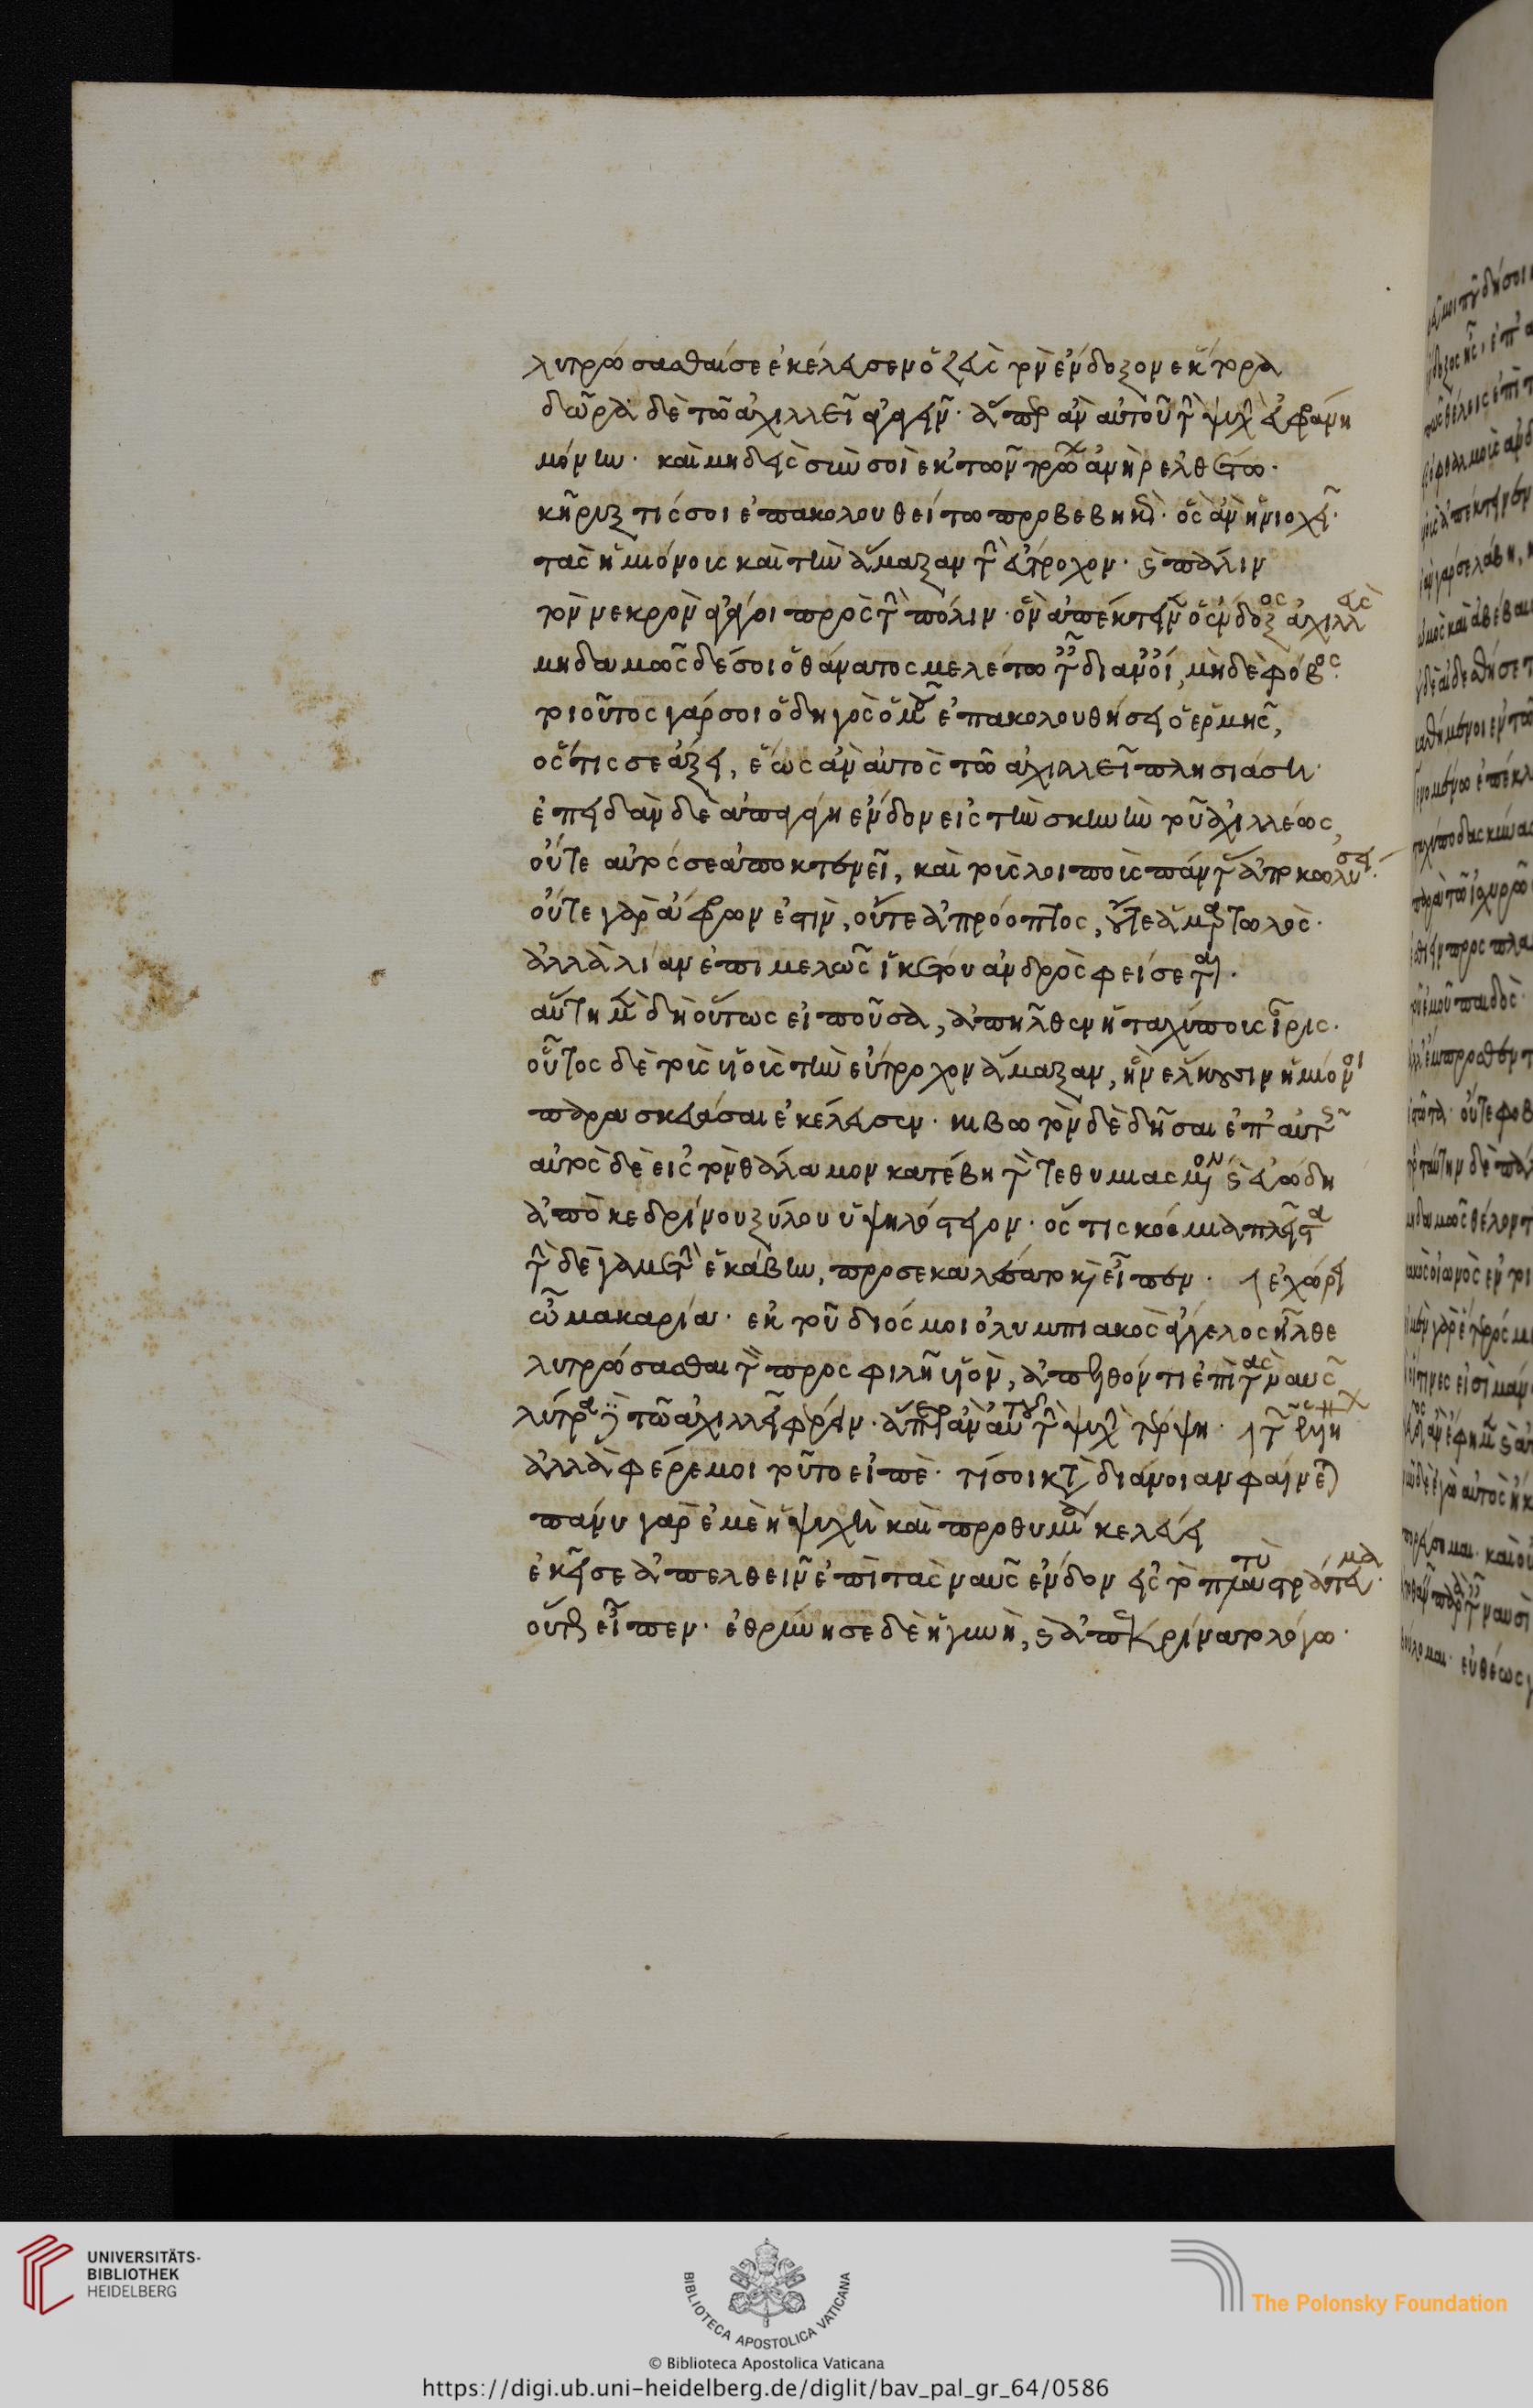 λυτρώσασθαί σε ἐκέλευσεν ὁ ζεὺς τὸν ἔνδοξον ἕκτορα
δῶρα δὲ τῶ ἀχιλλεῖ φέρειν· ἅπερ ἂν αὐτοῦ τὴν ψυχὴν εὐφράνη
μόνω· καὶ μηδεὶς σὺν σοὶ ἐκ τῶν τρώων ἀνὴρ ἐλθέτω·
κῆρυξ τίς σοι ἐπακολουθείτω προβεβηκώς· ὃς ἂν ἡνιοχῆ·
τὰς ἡμιόνους καὶ τὴν ἅμαξαν τὴν εὔτροχον· καὶ πάλιν
τὸν νεκρὸν φέροι πρὸς τὴν πόλιν· ὃν ἀπέκτεινεν ὁ ἔνδοξος ἀχιλλεὺς
μηδαμῶς δέ σοι ὁ θάνατος μελέτω τῇ διανοί, μὴδὲ φόβος·
τοιοῦτος γάρ σοι ὁδηγὸς ὁμοῦ ἐπακολουθήσει ὁ ἑρμῆς,
ὅστις σε ἄξει, ἕως ἂν αὐτὸς τῶ ἀχιλλεῖ πλησιάση·
ἐπειδὰν δὲ ἀπαγάγη ἔνδον εἰς τὴν σκηνὴν τοῦ ἀχιλλέως,
οὔτε αὐτός σε ἀποκτενεῖ, καὶ τοὺς λοιποὺς πάντας ἀποκωλύσει·
οὔτε γὰρ ἄφρων ἐστὶν, οὔτε ἀπρόοπτος, οὔτε ἁμαρτωλὸς·
ἀλλὰ λίαν ἐπιμελῶς ἱκέτου ἀνδρὸς φείσεται·
αὕτη μὲν δὴ οὕτως εἰποῦσα, ἀπῆλθεν ἡ ταχύπους ἶρις·
οὗτος δὲ τοὺς υἱοὺς τὴν εὔτροχον ἅμαξαν, ἣν ἕλκουσιν ἡμίονοι
παρασκευάσαι ἐκέλευσεν· κιβωτὸν δὲ δῆσαι ἐπ' αὐτῆς
αὐτὸς δὲ εἰς τὸν θάλαμον κατέβη τὸν τεθυμιασμένον καὶ εὐώδη
ἀπὸ κεδρίνου ξύλου ὑψηλότερον· ὅς τις κόσμια πλεῖστα
τὴν δὲ γαμετὴν ἑκάβην, προσεκαλέσατο καὶ εἶπεν· ἐχώρει
ὦ μακαρία· ἐκ τοῦ διός μοι ὀλυμπιακὸς ἄγγελος ἦλθε
λυτρώσασθαι τὸν προσφιλῆ υἱὸν, ἀπελθόντι ἐπὶ τὰς ναῦς
λύτρα τῶ ἀχιλλεῖ φέρειν· ἅπερ ἂν αὐτοῦ τὴν ψυχὴν τέρψη·
ἀλλὰ φέρε μοι τοῦτο εἰπὲ· τί σοι κατὰ διάνοιαν φαίνεται
πάνυ γὰρ ἐμὲ ἡ ψυχὴ καὶ προθυμία κελεύει
ἐκεῖσε ἀπελθεῖν ἐπὶ τὰς ναῦς ἔνδον εἰς τὸ πλατὺ στράτευμα·
οὕτως εἶπεν· ἐθρήνησε δὲ ἡ γυνὴ, καὶ ἀπεκρίνατο λόγω·
UNIVERSITÄTS-
BIBLIOTHEK
HEIDELBERG
BIBLIOTECA APOSTOLICA VATICANA
The Polonsky Foundation
© Biblioteca Apostolica Vaticana
https://digi.ub.uni-heidelberg.de/diglit/bav_pal_gr_64/0586